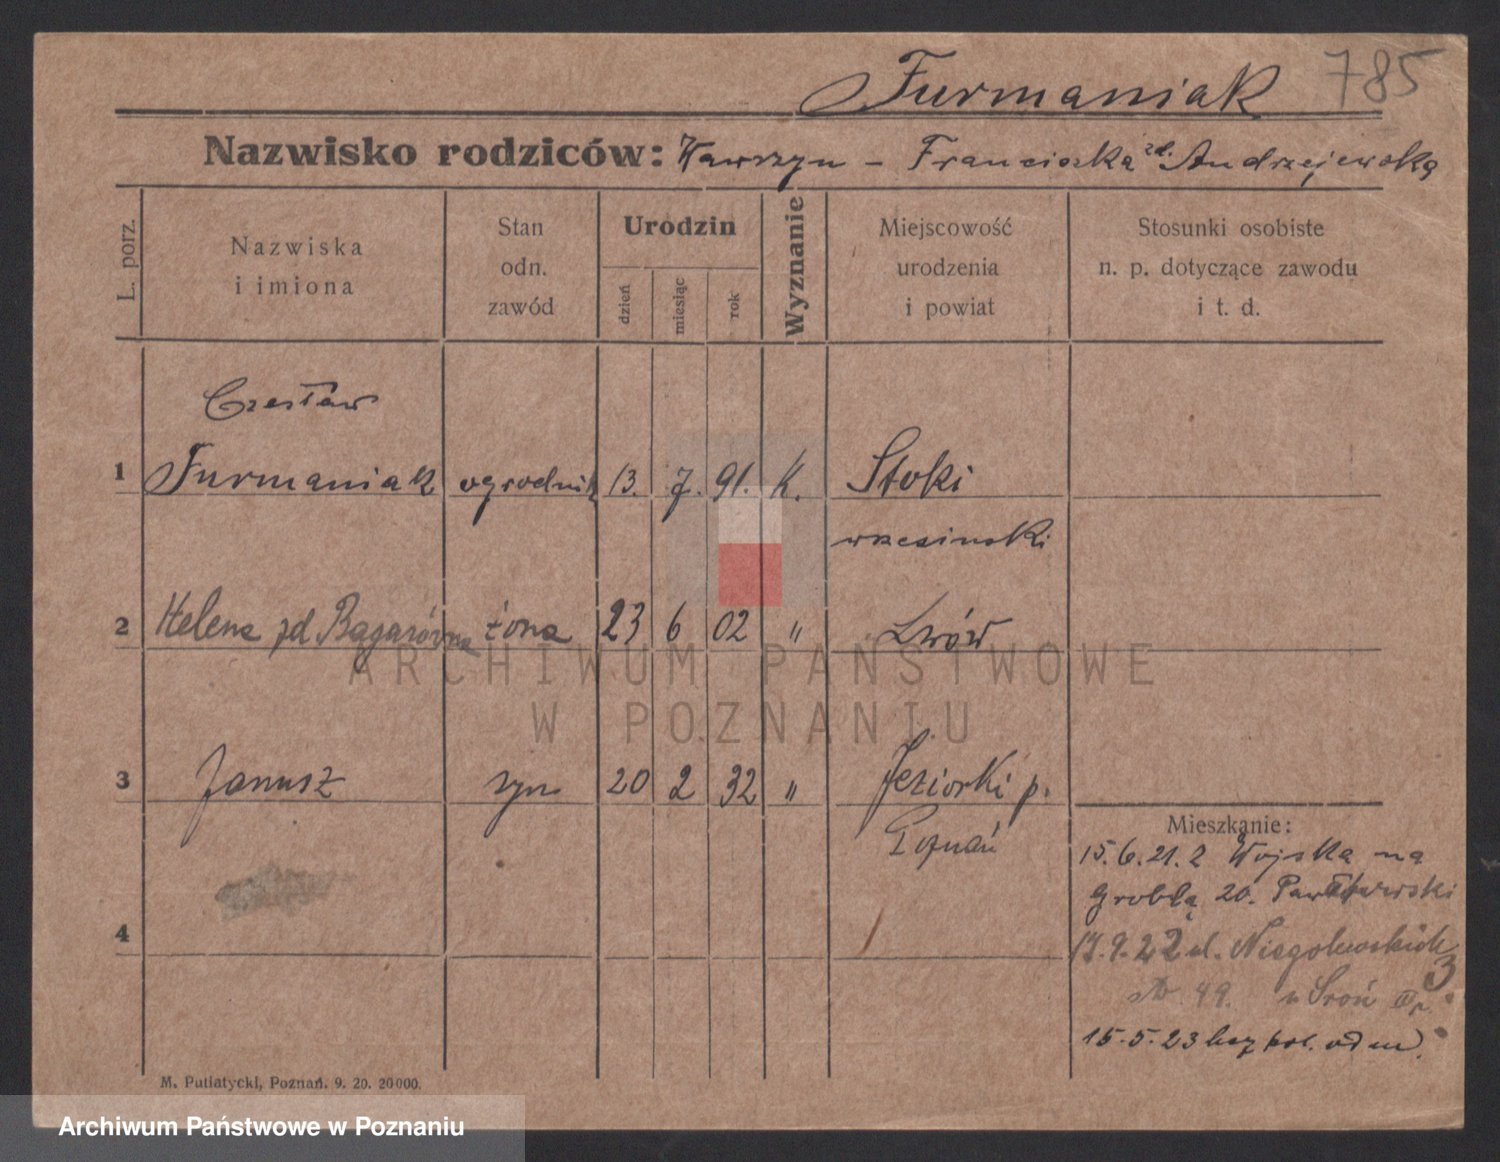 Furmaniak 785
Nazwisko rodziców: Wawrzyn - Franciszka zd. Andrzejewska
L. porz.
Nazwiska
i imiona
Stan
odn.
zawód
Urodzin
dzień
miesiąc
rok
Wyznanie
Miejscowość
urodzenia
i powiat
Stosunki osobiste
n. p. dotyczące zawodu
i t. d.
Czesław
1 Furmaniak ogrodnik 13. 7. 91. K. Stoki
wrzesinski
2 Helena zd Bagarówna żona 23 6 02 " Lwów
3 Janusz syn 20 2 32 " Jeziorki p.
Poznań
4
Mieszkanie:
15.6.21. z Wojska na
Groblą 20.
17.9.22 ul. Niegolewskich
49. u Sroń
15.5.23 bez pol. odm.
M. Putiatycki, Poznań. 9. 20. 20000.
ARCHIWUM PAŃSTWOWE
W POZNANIU
Archiwum Państwowe w Poznaniu